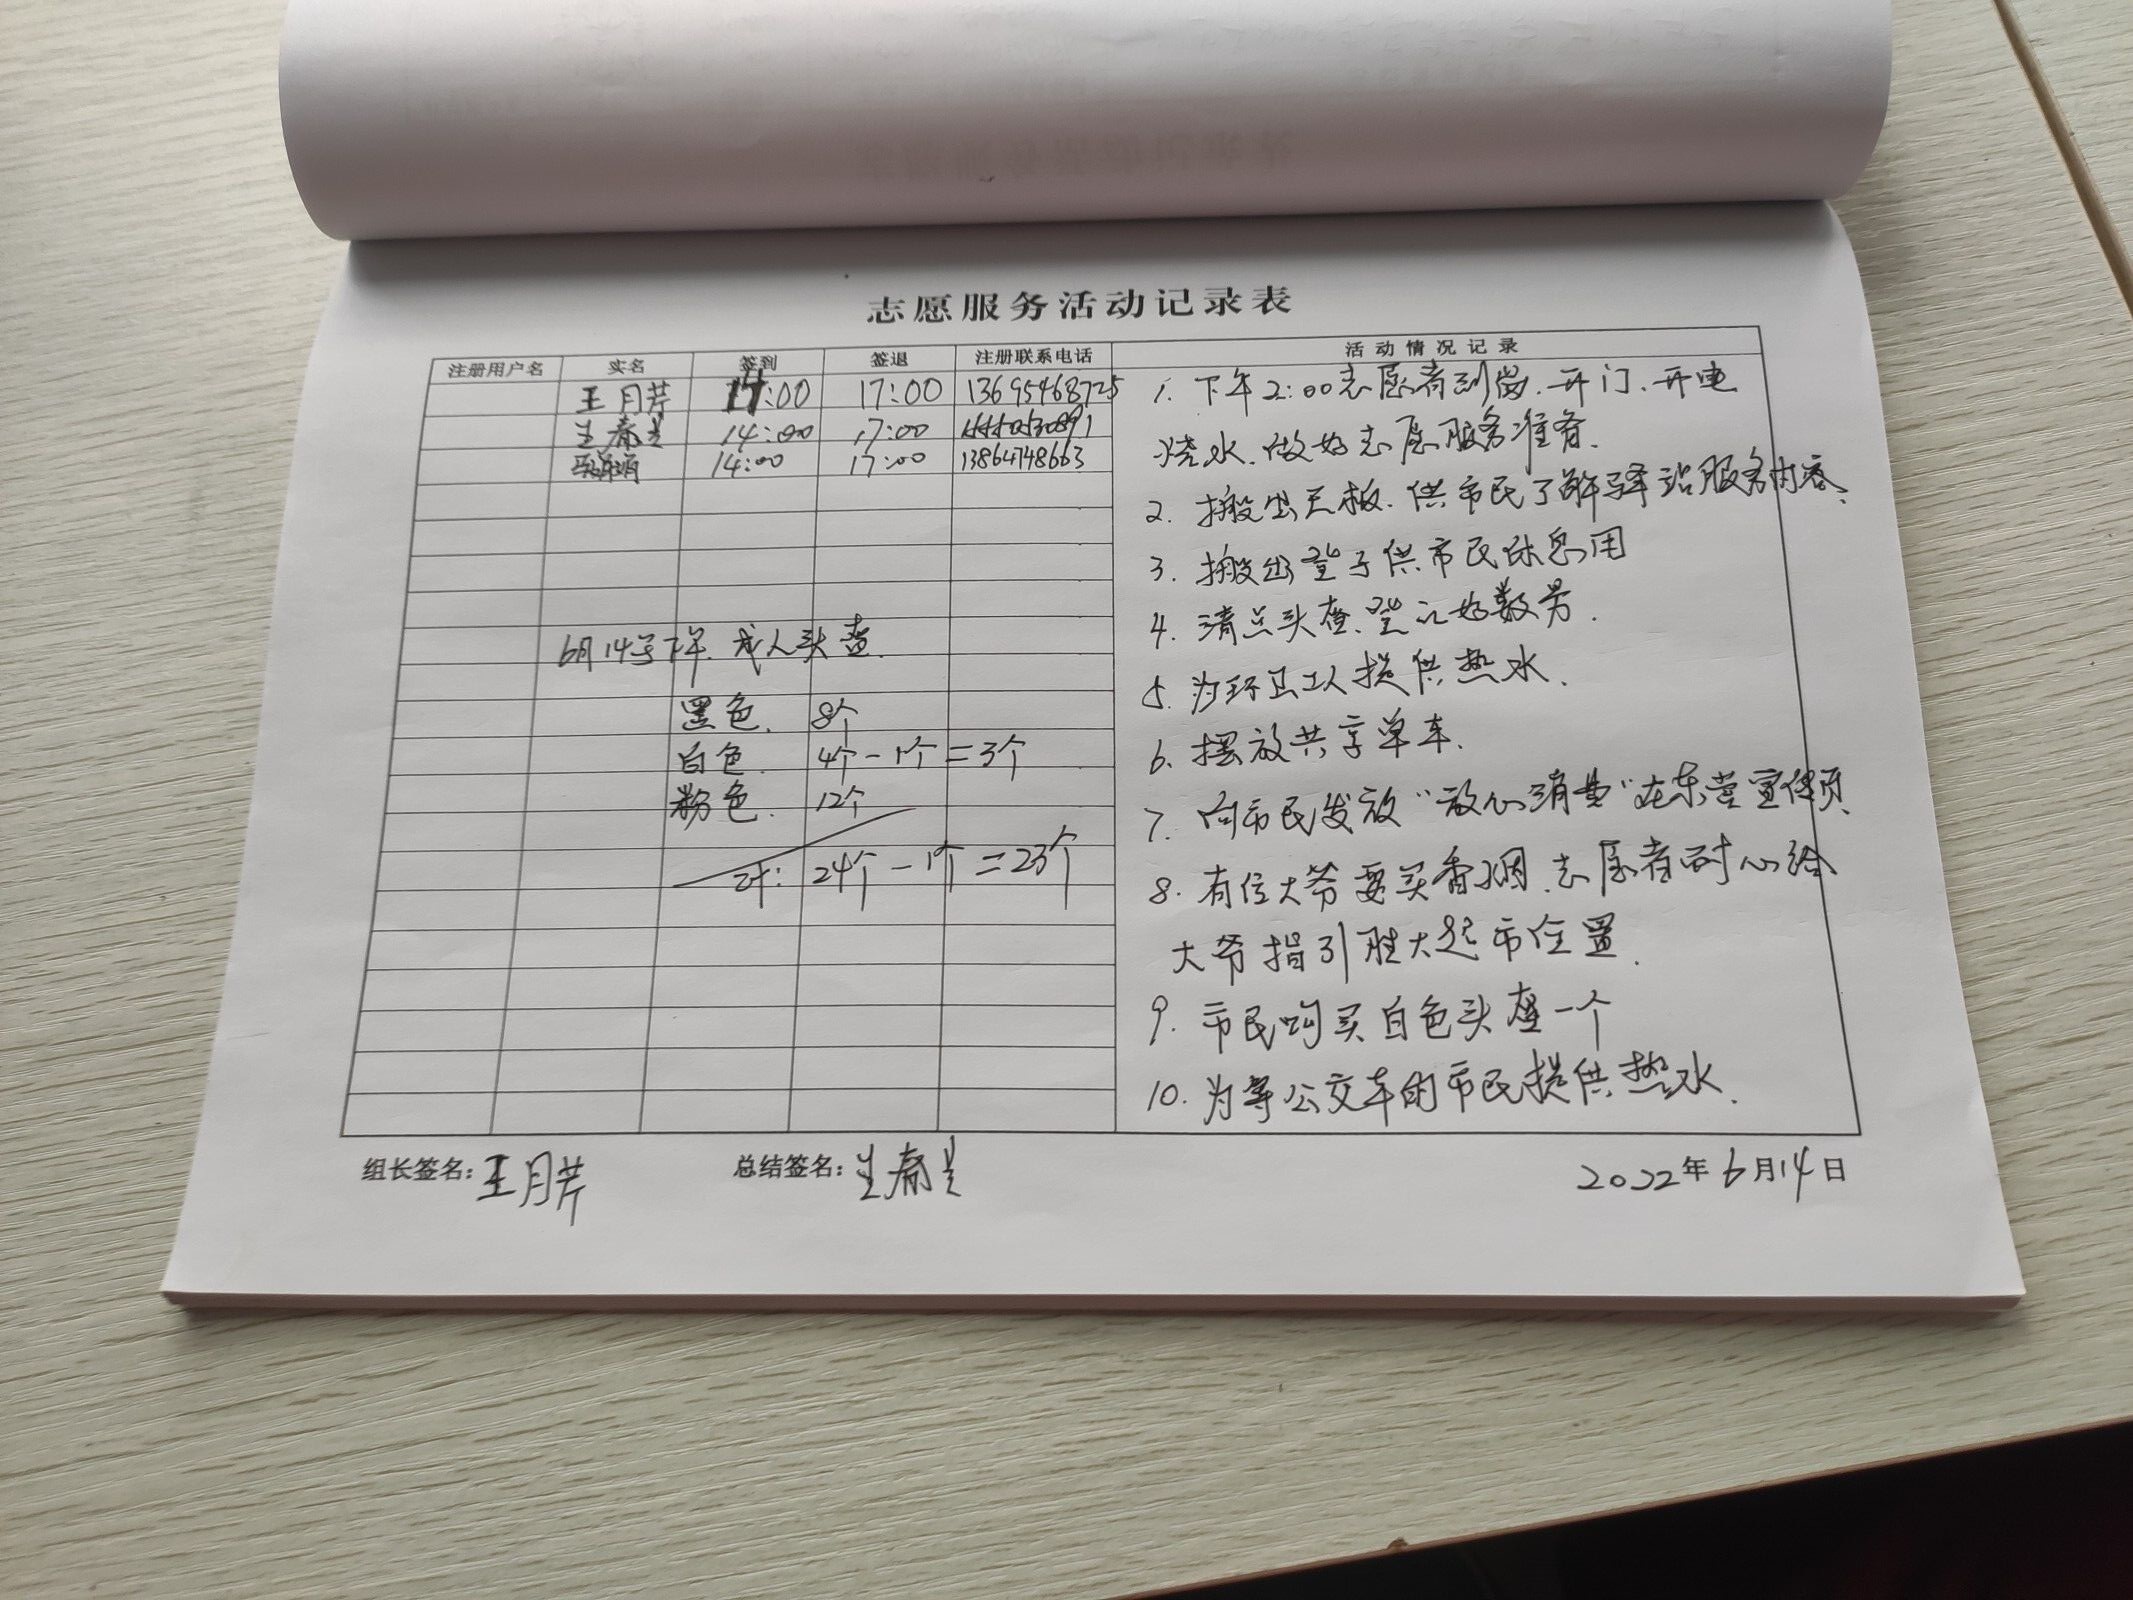 志愿服务活动记录表
注册用户名 实名 签到 签退 注册联系电话 活动情况记录
王月芹 14:00 17:00 13695468725
14:00 17:00
14:00 17:00 13864748663
6月14号下午. 成人头盔.
黑色. 8个
白色. 4个-1个=3个
粉色. 12个
计: 24个-1个=23个
1. 下午2:00志愿者到岗. 开门. 开电
烧水. 做好志愿服务准备.
2. 搬出展板. 供市民了解驿站服务内容.
3. 搬出登子供市民休息用
4. 清点头盔. 登记好数字.
5. 为环卫工人提供热水.
6. 摆放共享单车.
7. 向市民发放“放心消费”在东营宣传页.
8. 有位大爷要买香烟. 志愿者耐心给
大爷指引胜大超市位置.
9. 市民购买白色头盔一个
10. 为等公交车的市民提供热水.
组长签名: 王月芹 总结签名: 2022年6月14日